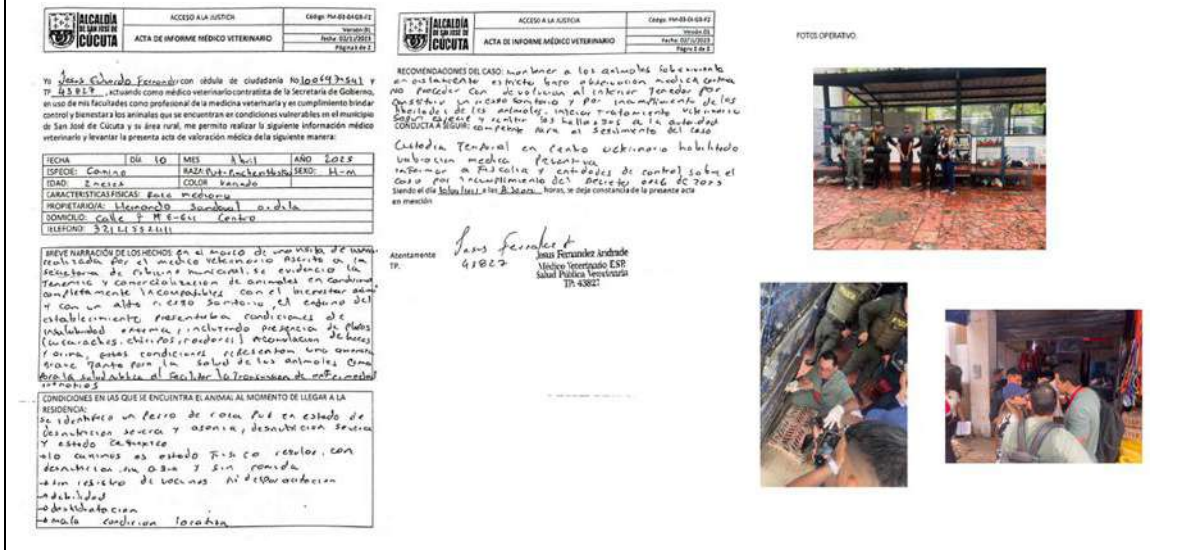 ALCALDÍA
DE SAN JOSÉ DE
CÚCUTA
ACCESO A LA JUSTICIA
ACTA DE INFORME MÉDICO VETERINARIO
Código: PM-03-04-G9-F2
Versión:01
Fecha: 02/11/2023
Página 1 de 2
Yo Jesus Eduardo Fernandez con cédula de ciudadanía No. y
TP 43827, actuando como médico veterinario contratista de la Secretaría de Gobierno,
en uso de mis facultades como profesional de la medicina veterinaria y en cumplimiento brindar
control y bienestar a los animales que se encuentran en condiciones vulnerables en el municipio
de San José de Cúcuta y su área rural, me permito realizar la siguiente información médico
veterinario y levantar la presenta acta de valoración médica de la siguiente manera:
FECHA DÍA 10 MES Abril AÑO 2025
ESPECIE: Canino RAZA: SEXO: H-M
EDAD: 2 meses COLOR Vanado
CARACTERISTICAS FISICAS: Raza mediana
PROPIETARIO/A: Hernando Sandoval
DOMICILIO: Calle 7 # 6-61 Centro
TELEFONO:
BREVE NARRACIÓN DE LOS HECHOS: en el marco de una visita de
realizada por el medico veterinario Ascrito a la
Secretaria de Gobierno municipal, se evidencio la
Tenencia y comercializacion de animales en
completamente incompatibles con el bienestar
y con un alto riesgo Sanitario, el entorno del
establecimiento presentaba condiciones de
insalubridad extrema, incluyendo presencia de plagas
(cucarachas, chiripas, roedores) Acomulacion de heces
y orina, estas condiciones representan una amenaza
grave Tanto para la salud de los animales como
para la salud publica al facilitar la Transmision de enfermedades
CONDICIONES EN LAS QUE SE ENCUENTRA EL ANIMAL AL MOMENTO DE LLEGAR A LA
RESIDENCIA:
Se identifico un Perro de raza Put en estado de
desnutricion severa y , desnutricion severa
y estado
lo caninos es estado Fisico regular, con
desnutricion sin agua y sin comida
sin registro de vacunas ni desparacitacion
debilidad
deshidratacion
mala condicion
ALCALDÍA
DE SAN JOSÉ DE
CÚCUTA
ACCESO A LA JUSTICIA
ACTA DE INFORME MÉDICO VETERINARIO
Código: PM-03-04-G9-F2
Versión:01
Fecha: 02/11/2023
Página 2 de 2
RECOMENDACIONES DEL CASO: mantener a los animales
en aislamiento estricto bajo observacion medica
No Proceder con devolucion al Tenedor por
Constituir un riesgo Sanitario y por incumplimiento de las
libertades de los animales, iniciar tratamiento veterinario
Segun especie y remitir los hallazgos a la autoridad
CONDUCTA A SEGUIR: competente para el seguimiento del caso
Custodia Temporal en centro veterinario habilitado
valoracion medica
informar a Fiscalia y entidades de control sobre el
caso por incumplimiento del Decreto 0046 de 2025
Siendo el día a las horas, se deja constancia de la presente acta
en mención
Atentamente
TP. 43827
Jesus Fernandez Andrade
Médico Veterinario ESP.
Salud Pública Veterinaria
TP: 43827
FOTOS OPERATIVO:
POLICIA